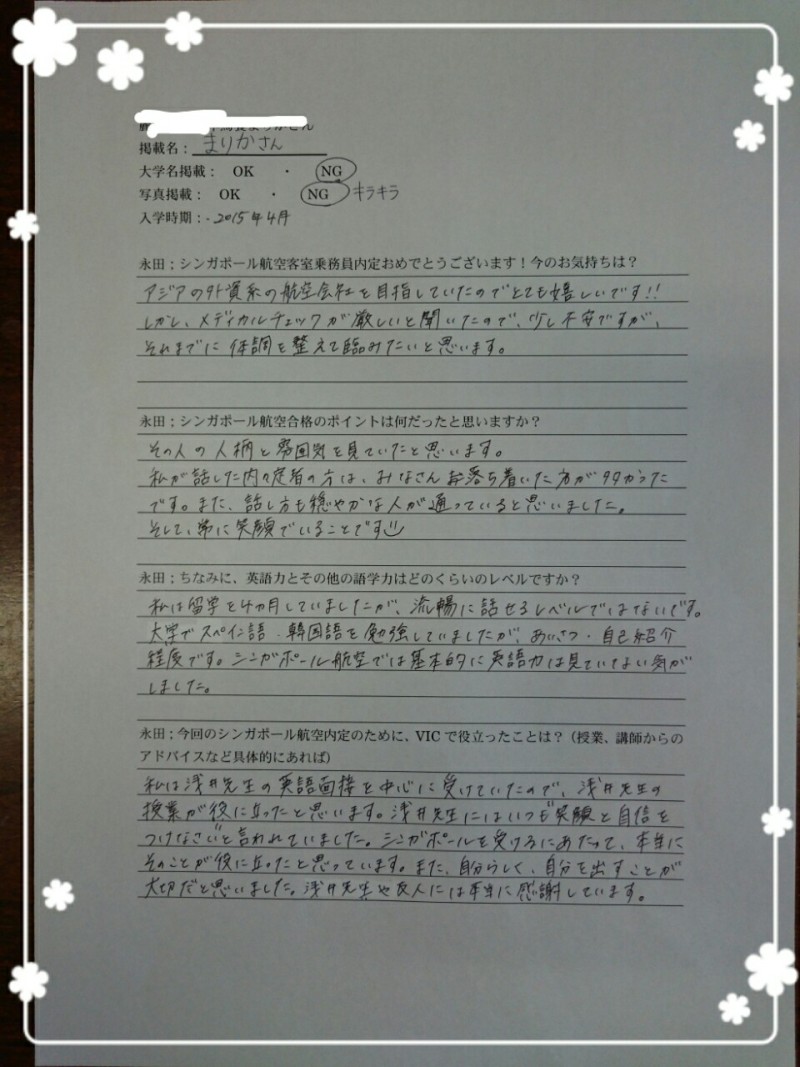 掲載名：まりかさん
大学名掲載： OK ・ NG
写真掲載： OK ・ NG キラキラ
入学時期：- 2015年4月
永田；シンガポール航空客室乗務員内定おめでとうございます！今のお気持ちは？
アジアの外資系の航空会社を目指していたのでとても嬉しいです!!
しかし、メディカルチェックが厳しいと聞いたので、少し不安ですが、
それまでに体調を整えて臨みたいと思います。
永田；シンガポール航空合格のポイントは何だったと思いますか？
その人の人柄と雰囲気を見ていたと思います。
私が話した内々定者の方は、みなさんお落ち着いた方が多かった
です。また、話し方も穏やかな人が通っていると思いました。
そして、常に笑顔でいることです
永田；ちなみに、英語力とその他の語学力はどのくらいのレベルですか？
私は留学を4カ月していましたが、流暢に話せるレベルではないです。
大学でスペイン語・韓国語を勉強していましたが、あいさつ・自己紹介
程度です。シンガポール航空では基本的に英語力は見ていてない気が
しました。
永田；今回のシンガポール航空内定のために、VICで役立ったことは？（授業、講師からの
アドバイスなど具体的にあれば）
私は浅井先生の英語面接を中心に受けていたので、浅井先生の
授業が役に立ったと思います。浅井先生にはいつも"笑顔と自信を
つけなさい"と言われていました。シンガポールを受けるにあたって、本当に
そのことが役に立ったと思っています。また、自分らしく、自分を出すことが
大切だと思いました。浅井先生や友人には本当に感謝しています。